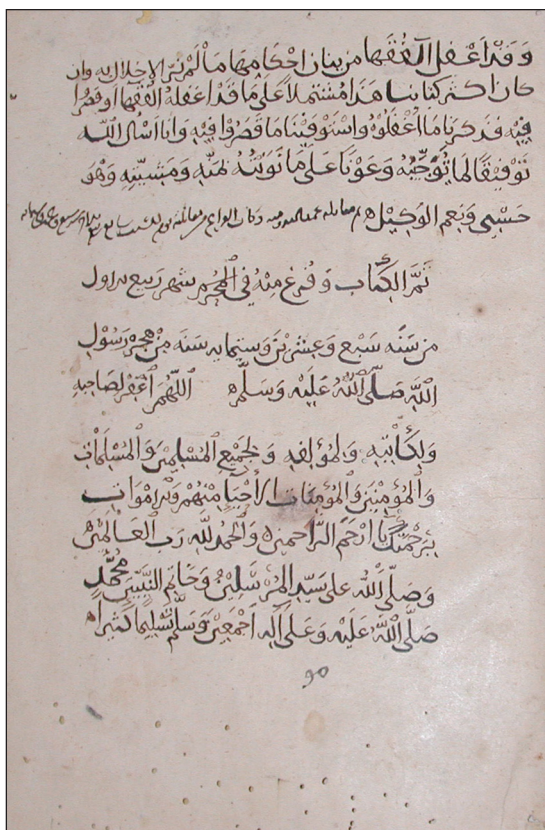 وقد اغفل الفقها من بيان احكامها ما لم نر الاخلال به وان
كان اكثر كتابنا هذا مشتملا على ما قد اغفله الفقها او قصروا
فيه فذكرنا ما اغفلوه واستوفينا ما قصروا فيه وانا اسال الله
توفيقا لما توخيته وعونا على ما نويته بمنه ومشيئته وهو
حسبي ونعم الوكيل
تم الكتاب وفرغ منه في شهر ربيع الاول
من سنه سبع وعشرين وستمايه سنه من هجره رسول
الله صلى الله عليه وسلم اللهم اغفر لصاحبه
ولكاتبه ولمؤلفه ولجميع المسلمين والمسلمات
والمؤمنين والمؤمنات الاحيا منهم والاموات
برحمتك يا ارحم الراحمين والحمد لله رب العالمين
وصلى الله على سيد المرسلين وخاتم النبيين محمد
صلى الله عليه وعلى اله اجمعين وسلم تسليما كثيرا